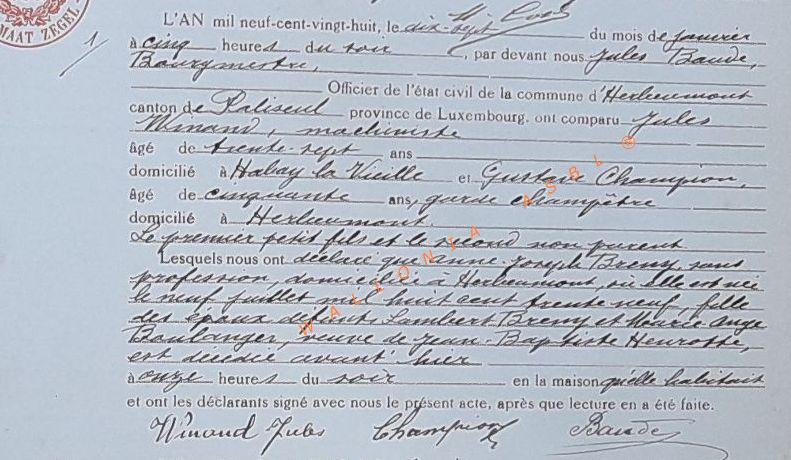 MAAT ZEGEL
1/
L'AN mil neuf-cent-vingt-huit, le dix-sept du mois de janvier
à cinq heures du soir, par devant nous Jules Baude,
Bourgmestre,
Officier de l'état civil de la commune d'Herbeumont
canton de Paliseul province de Luxembourg, ont comparu Jules
Winand, machiniste
âgé de trente-sept ans
domicilié à Habay la Vieille et Gustave Champion,
âgé de cinquante ans, garde champêtre
domicilié à Herbeumont
Le premier petit fils et le second non parent
Lesquels nous ont déclaré que Anne-Joseph Bremy, sans
profession, domiciliée à Herbeumont, où elle est née
le neuf juillet mil huit cent trente neuf, fille
des époux défunts Lambert Bremy et Marie Ange
Boulanger, veuve de Jean-Baptiste Henrotte,
est décédée avant hier
à onze heures du soir en la maison qu'elle habitait
et ont les déclarants signé avec nous le présent acte, après que lecture en a été faite.
Winand Jules Champion Baude
WALLONIA ASBL ©